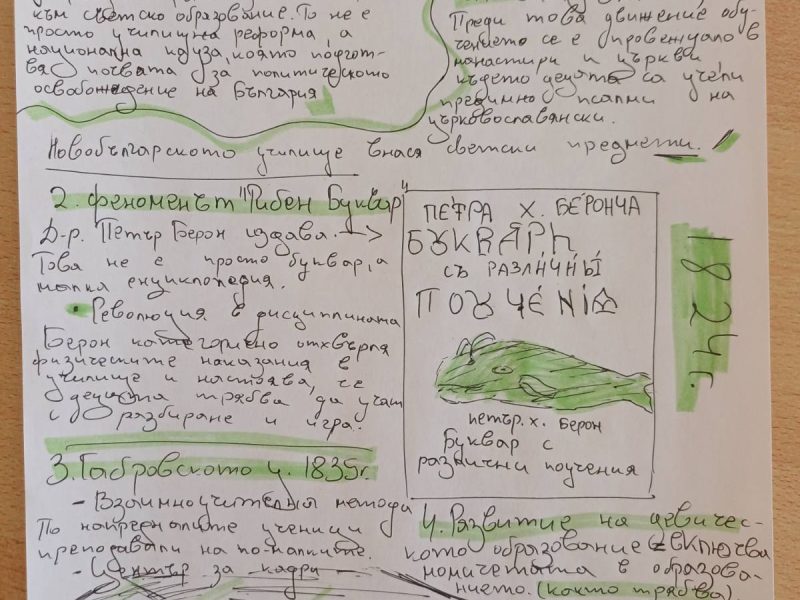 към светско образование. То не е
просто училищна реформа, а
национална кауза, която подгот-
вя почвата за политическото
освобождение на България
Преди това движение обу-
чението се е провеждало в
манастири и църкви
където децата са учели
предимно псалми на
църковославянски.
Новобългарското училище внася светски предмети.
2. Феноменът "Рибен Буквар"
Д-р. Петър Берон издава.
Това не е просто буквар, а
малка енциклопедия.
Революция в дисциплината
Берон категорично отхвърля
физическите наказания в
училище и настоява, че
децата трябва да учат
с разбиране и игра.
ПЕТРА Х. БЕРОНЧА
БꙊКВАРЬ
СЪ РАЗЛИЧНЫ
ПОꙊЧЕНІѦ
петър. х. Берон
Буквар с
различни поучения
1824г.
3. Габровското у. 1835г.
- Взаимноучителния метод
По напредналите ученици
преподавали на по-малките.
- Център за кадри -
4. Развитие на девичес-
кото образование = включва
момичетата в образова-
нието. (както трябва).